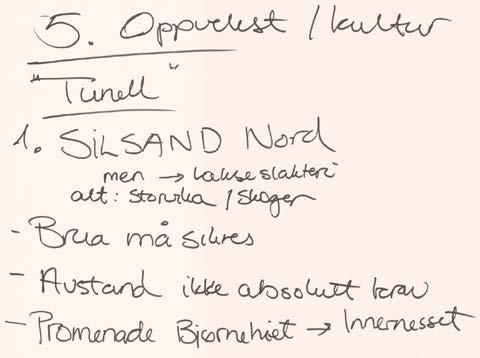 5. Oppvekst / kultur
"Tunell"
1. SILSAND Nord
men → lakseslakteri
alt: Storvika / Skogen
- Brua må sikres
- Avstand ikke absolutt krav
- Promenade Bjørnehiet → Innernesset